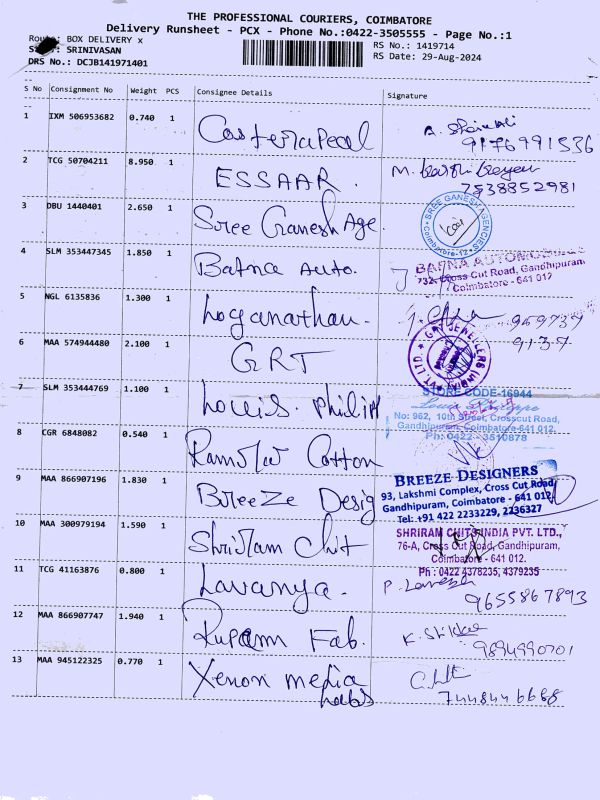 THE PROFESSIONAL COURIERS, COIMBATORE
Delivery Runsheet - PCX - Phone No.:0422-3505555 - Page No.:1
Route: BOX DELIVERY x
RS No.: 1419714
SRINIVASAN
RS Date: 29-Aug-2024
DRS No.: DCJB141971401
S No Consignment No Weight PCS Consignee Details Signature
1 IXM 506953682 0.740 1
9176991536
2 TCG 50704211 8.950 1 ESSAAR.
7538852981
3 DBU 1440401 2.650 1 Sree Ganesh Age.
SREE GANESH AGENCIES
Coimbatore-12
4 SLM 353447345 1.850 1 Batna Auto.
732, Cross Cut Road, Gandhipuram,
Coimbatore - 641 012
5 NGL 6135836 1.300 1 Loganathan.
959737
9137
6 MAA 574944480 2.100 1 GRT
JEWELLERS (INDIA) PVT. LTD.
7 SLM 353444769 1.100 1 Louis. Philip
STORE CODE-16944
No: 962, 10th Street, Crosscut Road,
Gandhipuram, Coimbatore-641 012.
Ph: 0422 - 3510878
8 CGR 6848082 0.540 1 Ramraj Cotton
9 MAA 866907196 1.830 1 Breeze Desig
BREEZE DESIGNERS
93, Lakshmi Complex, Cross Cut Road,
Gandhipuram, Coimbatore - 641 012.
Tel: +91 422 2233229, 2236327
10 MAA 300979194 1.590 1 Shriram Chit
SHRIRAM CHITS INDIA PVT. LTD.,
76-A, Cross Cut Road, Gandhipuram,
Coimbatore - 641 012.
Ph : 0422 4378235, 4379235
11 TCG 41163876 0.800 1 Lavanya.
9655867893
12 MAA 866907747 1.940 1 Rupam Fab.
9894990701
13 MAA 945122325 0.770 1 Xenon media
labs
7448446668